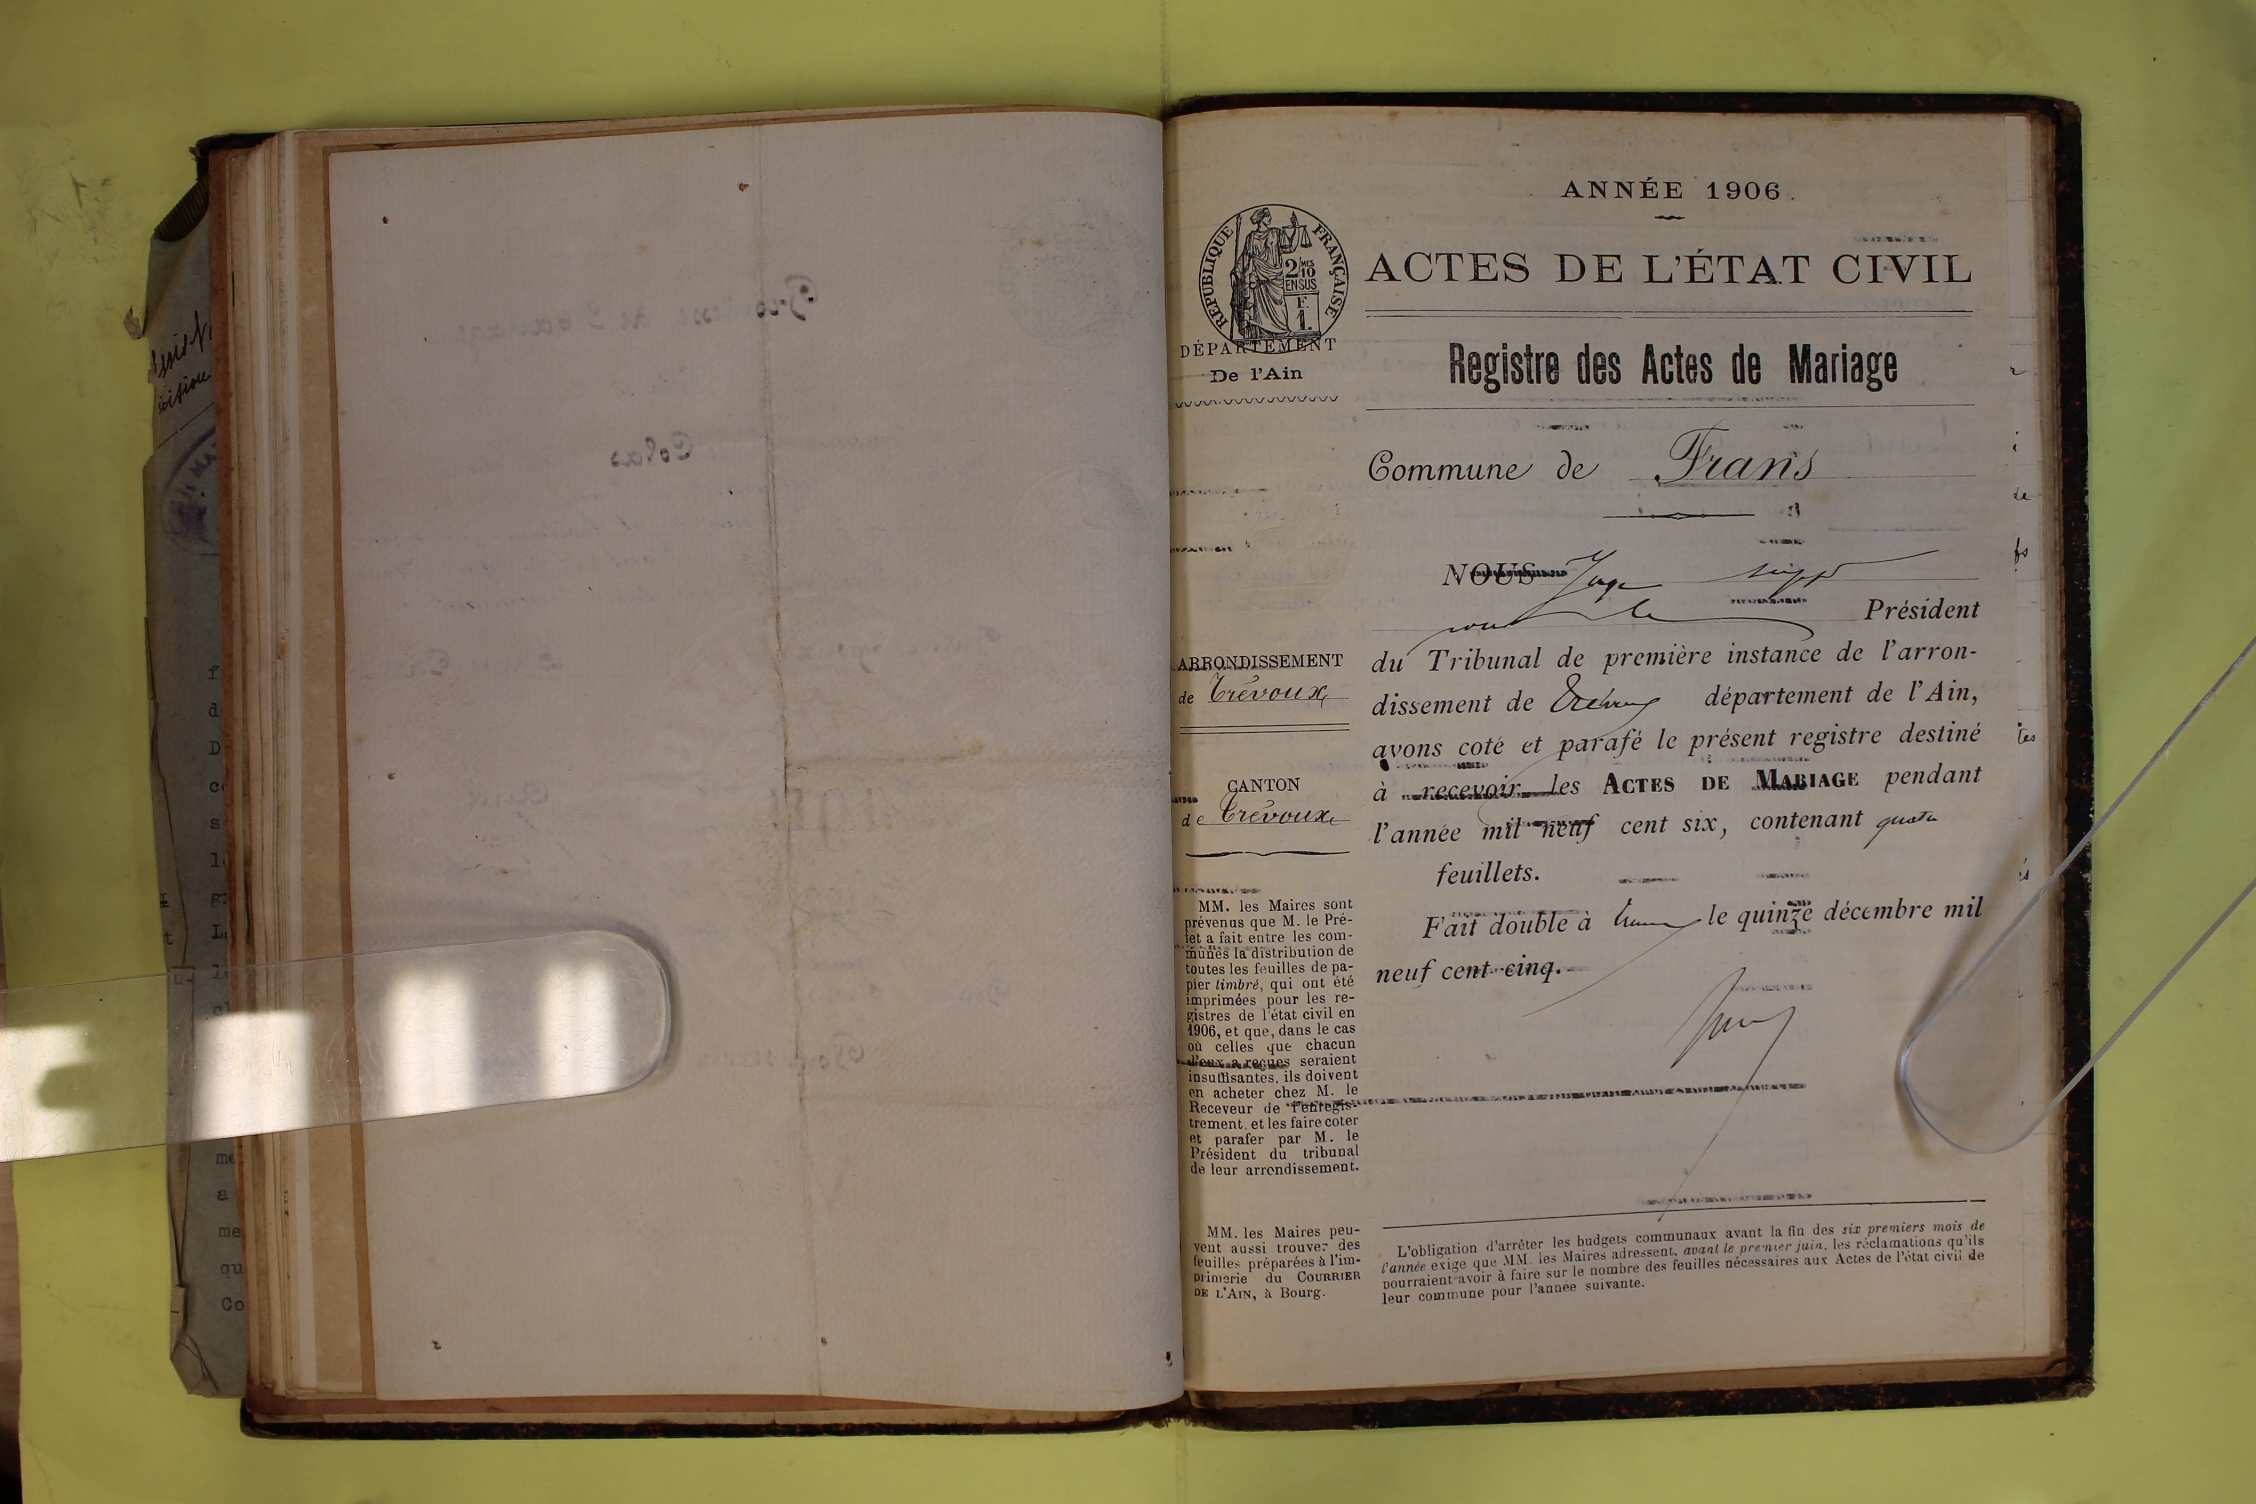 ANNÉE 1906.
ACTES DE L'ÉTAT CIVIL
RÉPUBLIQUE FRANÇAISE
2/10 MES
EN SUS
F.
1.
DÉPARTEMENT
De l'Ain
Registre des Actes de Mariage
Commune de Frans
NOUS Juge suppt
pour le Président
du Tribunal de première instance de l'arron-
dissement de Trévoux département de l'Ain,
avons coté et parafé le présent registre destiné
à recevoir les ACTES DE MARIAGE pendant
l'année mil neuf cent six, contenant quatre
feuillets.
Fait double à Trévoux le quinze décembre mil
neuf cent cinq.
ARRONDISSEMENT
de Trévoux
CANTON
de Trévoux
MM. les Maires sont
prévenus que M. le Pré-
fet a fait entre les com-
munes la distribution de
toutes les feuilles de pa-
pier timbré, qui ont été
imprimées pour les re-
gistres de l'état civil en
1906, et que, dans le cas
où celles que chacun
d'eux a reçues seraient
insuffisantes, ils doivent
en acheter chez M. le
Receveur de l'enregis-
trement, et les faire coter
et parafer par M. le
Président du tribunal
de leur arrondissement.
MM. les Maires peu-
vent aussi trouver des
feuilles préparées à l'im-
primerie du COURRIER
DE L'AIN, à Bourg.
L'obligation d'arrêter les budgets communaux avant la fin des six premiers mois de
l'année exige que MM. les Maires adressent, avant le premier juin, les réclamations qu'ils
pourraient avoir à faire sur le nombre des feuilles nécessaires aux Actes de l'état civil de
leur commune pour l'année suivante.